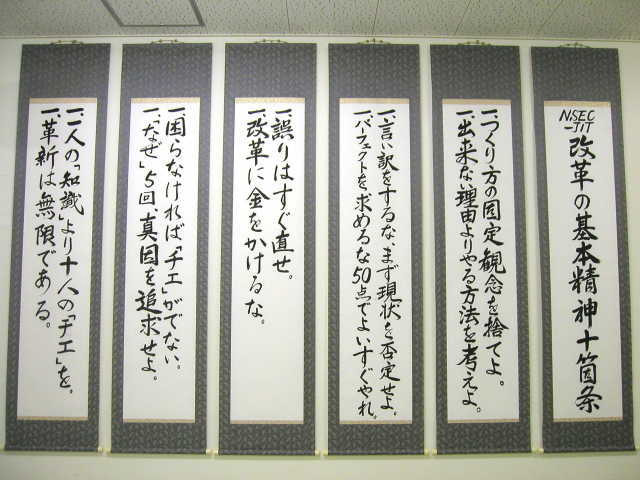 NSEC
-JIT
改革の基本精神十箇条
一、つくり方の固定観念を捨てよ。
一、出来ない理由よりやる方法を考えよ。
一、言い訳をするな、まず現状を否定せよ。
一、パーフェクトを求めるな50点でよいすぐやれ。
一、誤りはすぐ直せ。
一、改革に金をかけるな。
一、困らなければ「チエ」がでない。
一、「なぜ」5回真因を追求せよ。
一、一人の「知識」より十人の「チエ」を。
一、革新は無限である。